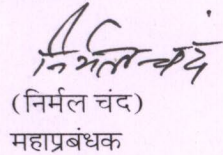 निर्मल चंद
(निर्मल चंद)
महाप्रबंधक